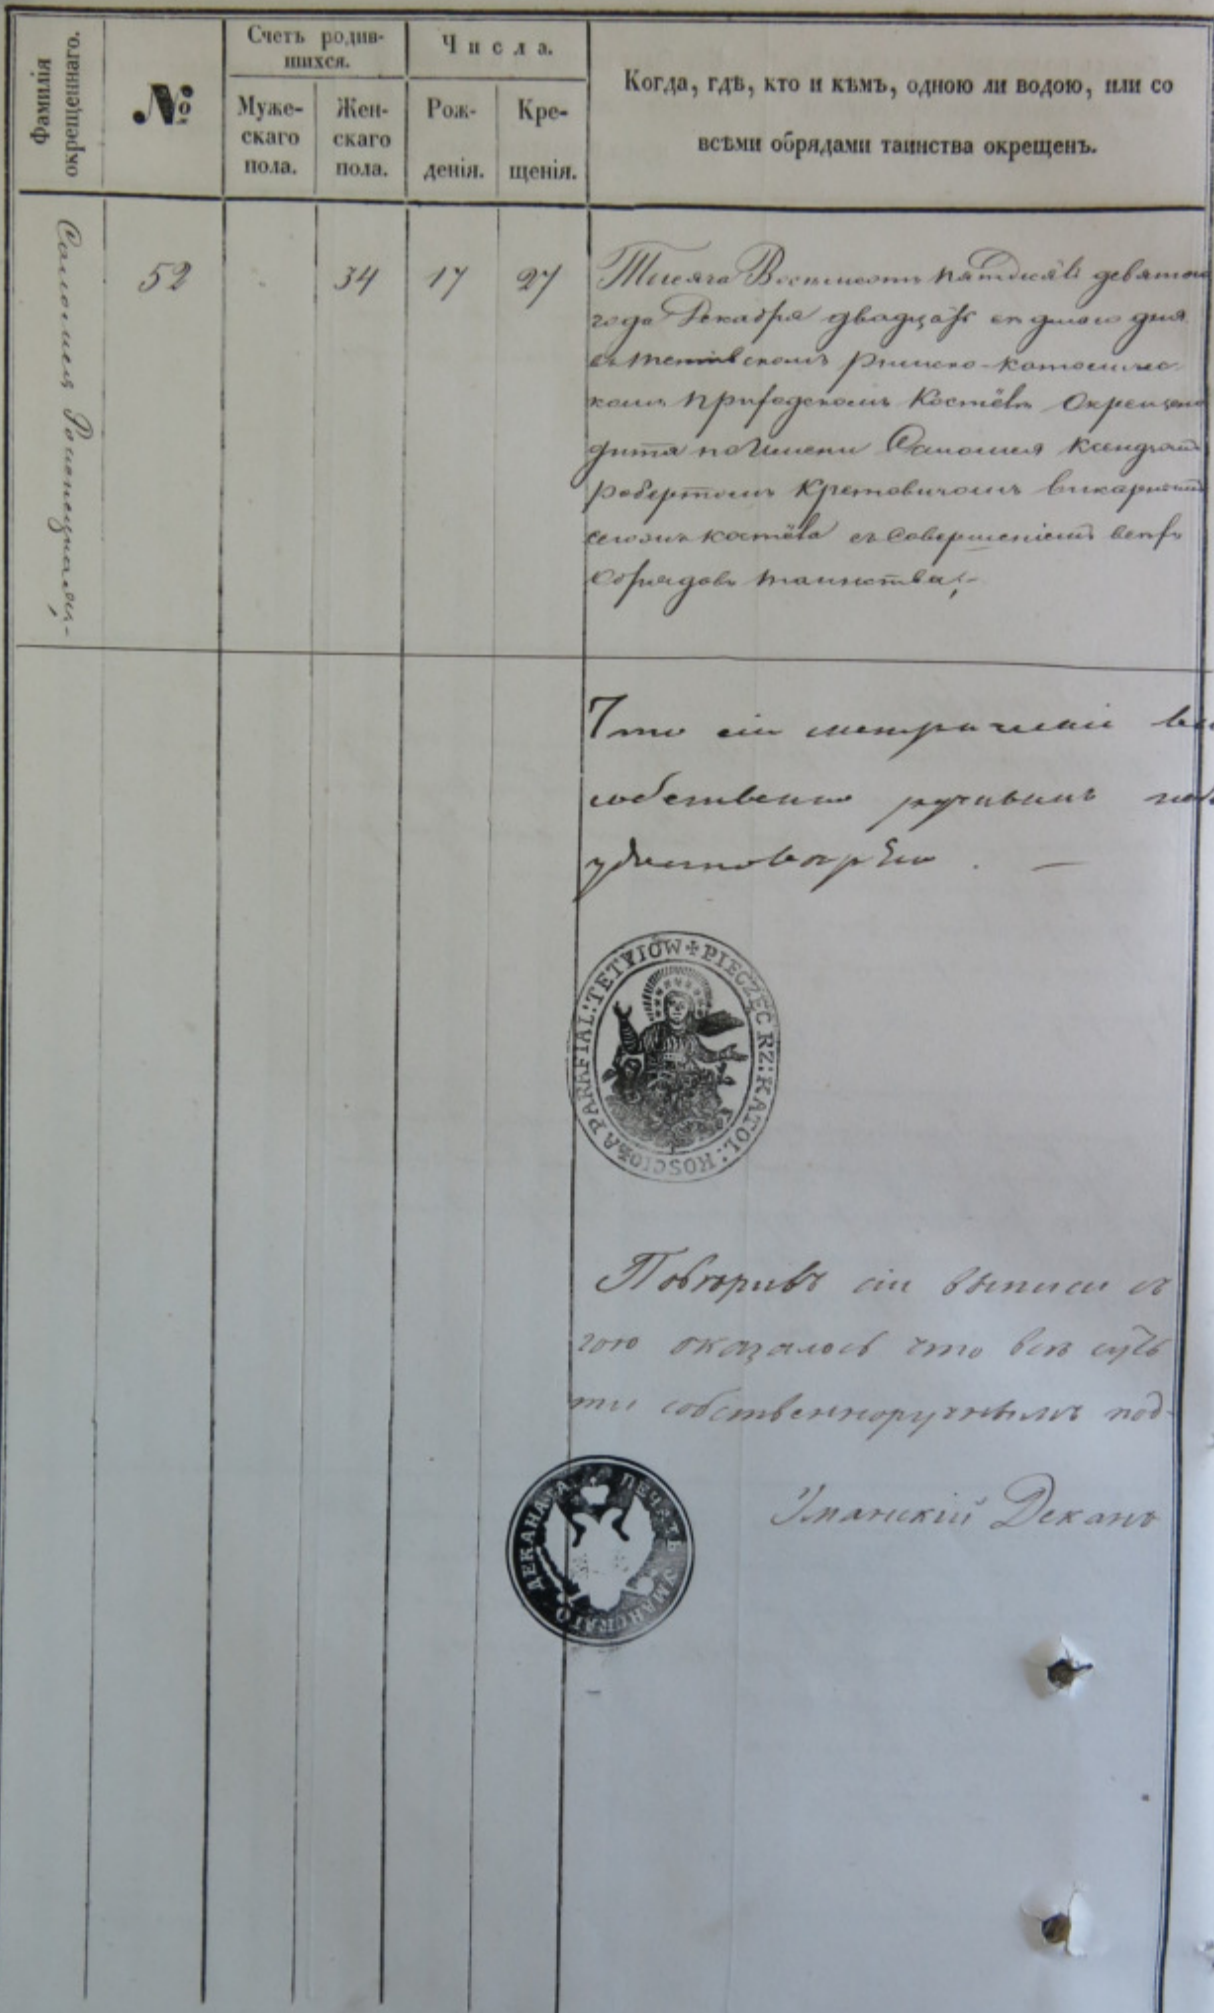 Фамилія окрещеннаго.
№
Счетъ родив-
шихся.
Муже-
скаго
пола.
Жен-
скаго
пола.
Числа.
Рож-
денія.
Кре-
щенія.
Когда, гдѣ, кто и кѣмъ, одною ли водою, или со
всѣми обрядами таинства окрещенъ.
Саломея
52
34
17
27
Тысяча Восемсотъ пятдесятъ девятого
года Декабря двадцать седмого дня
въ Римско-католичес-
комъ приходскомъ Костёлѣ Окрещено
дитя по Имени Саломея Ксендзомъ
Робертомъ Кретовичомъ викарнымъ
сегожъ костёла съ совершеніемъ всѣхъ
Обрядовъ таинства;-
Что сіи метрическіе
собственно ручнымъ
удостовѣряю. —
PIECZĘĆ RZ: KATOL: KOSCIOŁA PARAFIAL: TETYIÓW
Повѣривъ сіи выписи съ
гою оказалось что всѣ
ти собственноручнымъ под-
Уманскій Деканъ
ПЕЧАТЬ УМАНСКАГО ДЕКАНАТА